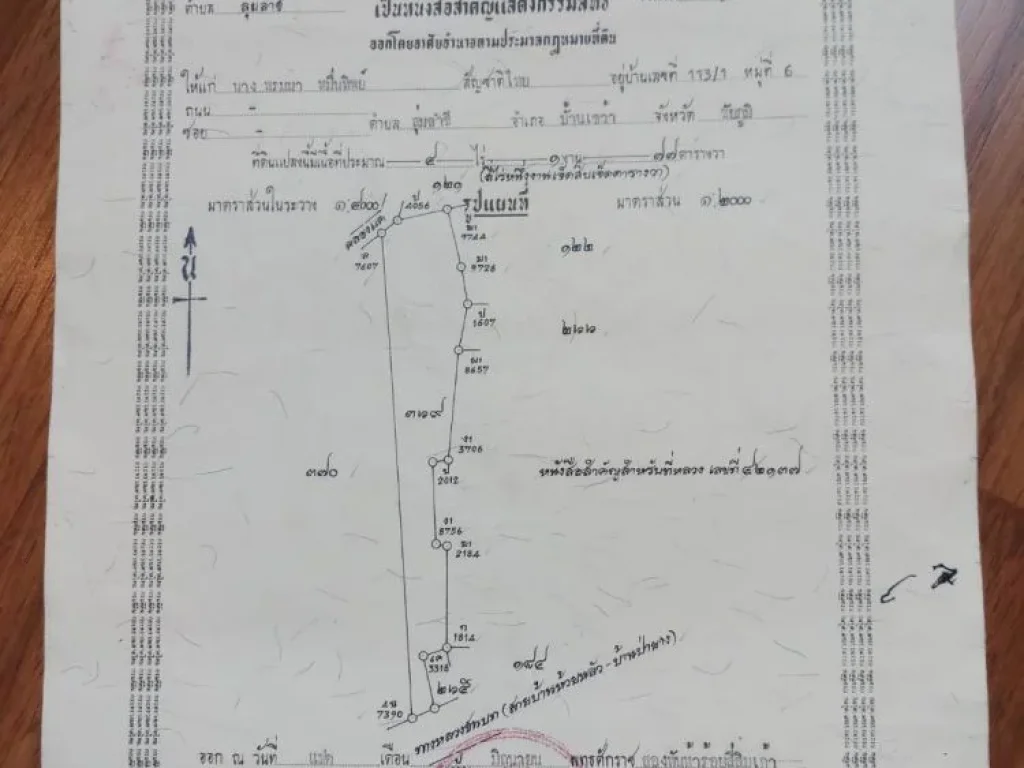 ตำบล ลุ่มลำชี
เป็นหนังสือสำคัญแสดงกรรมสิทธิ์
ออกโดยอาศัยอำนาจตามประมวลกฎหมายที่ดิน
ให้แก่ นาง สัญชาติไทย อยู่บ้านเลขที่ 113/1 หมู่ที่ 6
ถนน -
ซอย - ตำบล ลุ่มลำชี อำเภอ บ้านเขว้า จังหวัด ชัยภูมิ
ที่ดินแปลงนี้มีเนื้อที่ประมาณ ๔ ไร่ ๑ งาน ๗๗ ตารางวา
(สี่ไร่หนึ่งงานเจ็ดสิบเจ็ดตารางวา)
มาตราส่วนในระวาง ๑:๔๐๐๐ รูปแผนที่ มาตราส่วน ๑:๒๐๐๐
๑๒๑
คลองแค
7607
9744
๑๒๒
ฆา
9726
น
ป
1607
๒๑๑
ฒา
8657
๓๑๙
งา
3706
๓๗๐
2012
หนังสือสำคัญสำหรับที่หลวง เลขที่ ๔๒๑๓๗
งา
8756
ฆา
2184
ก
1814
3318
๑๙๔
๒๑๕
7390
ทางหลวงชนบท (สายบ้านห้วยหลัว-บ้านป่ายาง)
ออก ณ วันที่ แปด เดือน มิถุนายน พุทธศักราช สองพันห้าร้อยสี่สิบเก้า